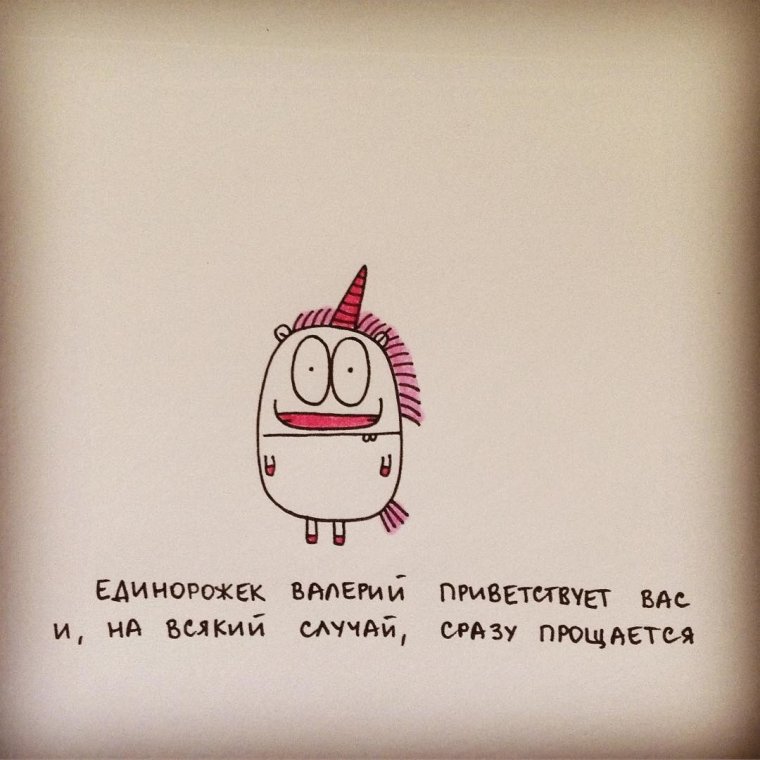 ЕДИНОРОЖЕК ВАЛЕРИЙ ПРИВЕТСТВУЕТ ВАС
И, НА ВСЯКИЙ СЛУЧАЙ, СРАЗУ ПРОЩАЕТСЯ